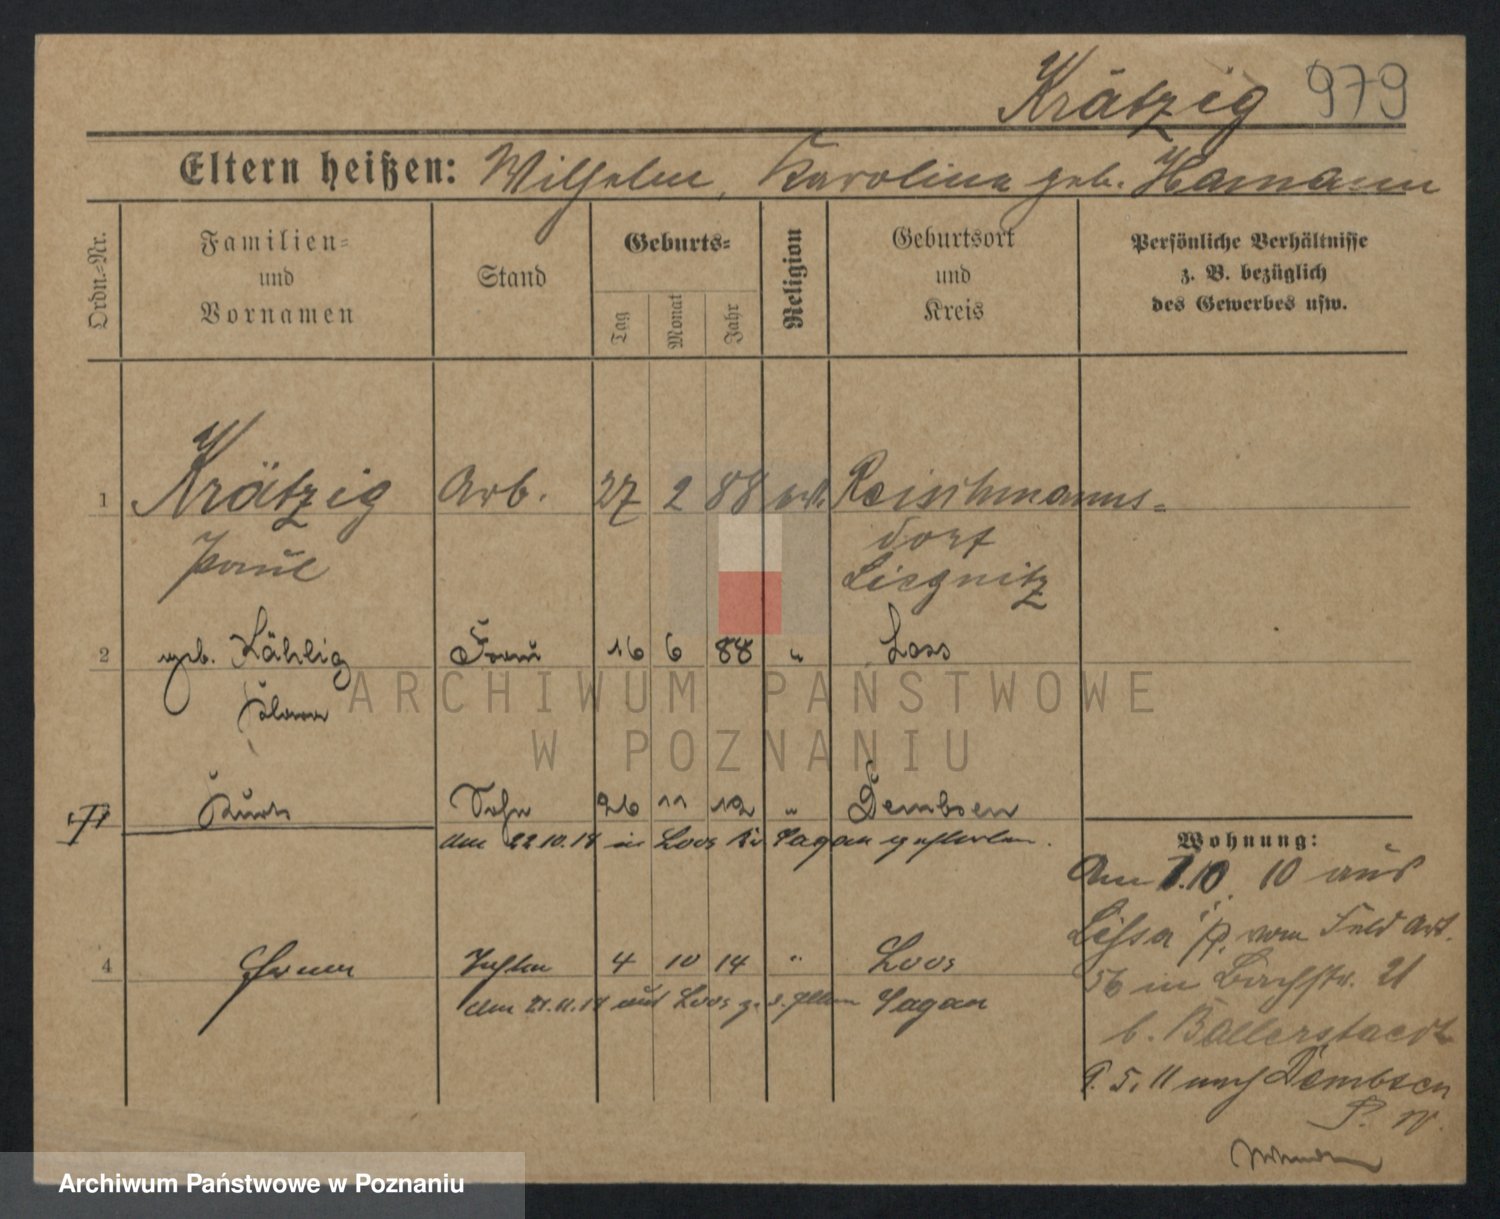 Krätzig 979
Eltern heißen: Wilhelm, Karolina geb. Hamann
Ordn.-Nr.
Familien-
und
Vornamen
Stand
Geburts-
Tag
Monat
Jahr
Religion
Geburtsort
und
Kreis
Persönliche Verhältnisse
z. B. bezüglich
des Gewerbes usw.
1 Krätzig Arb. 27 2 88 Reischmanns-
Paul dorf
Liegnitz
2 geb. Kählig Frau 16 6 88 " Loss
Kurt Sohn 26 11 12 " Dembsen
am 22.10.14 in Loos Kr Sagan gestorben.
4 Tochter 4 10 14 " Loos
Sagan
Wohnung:
Am 7.10. 10 aus
Lissa i/P. vom Feld Art.
56 in Bachstr. 21
b. Ballerstaedt
9. 5. 11 nach Dembsen
ARCHIWUM PAŃSTWOWE
W POZNANIU
Archiwum Państwowe w Poznaniu